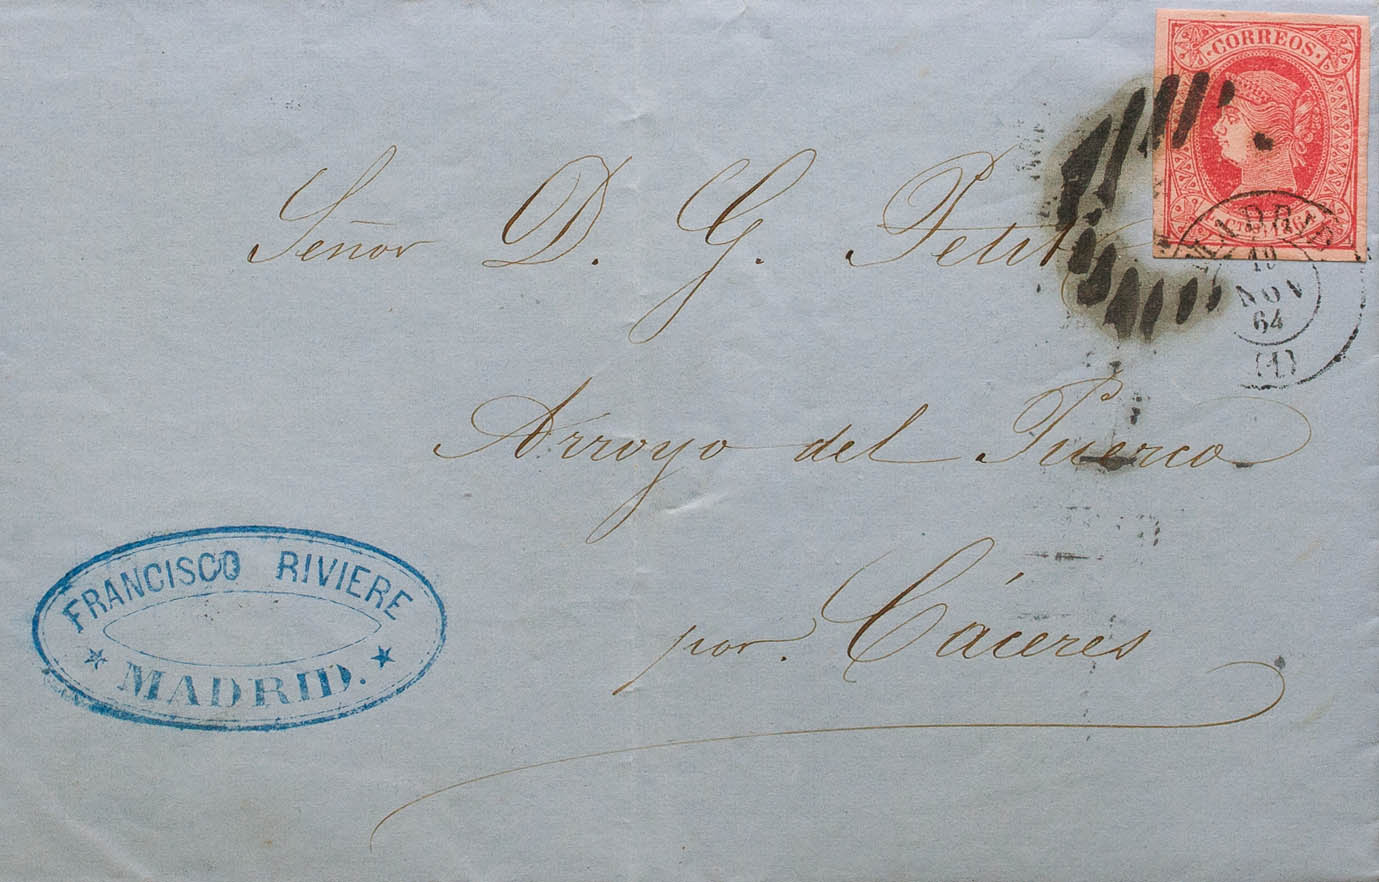 CORREOS
MADRID
19
NOV
64
(1)
Señor D. G. Petit
Arroyo del Puerco
por. Cáceres
FRANCISCO RIVIERE
MADRID.